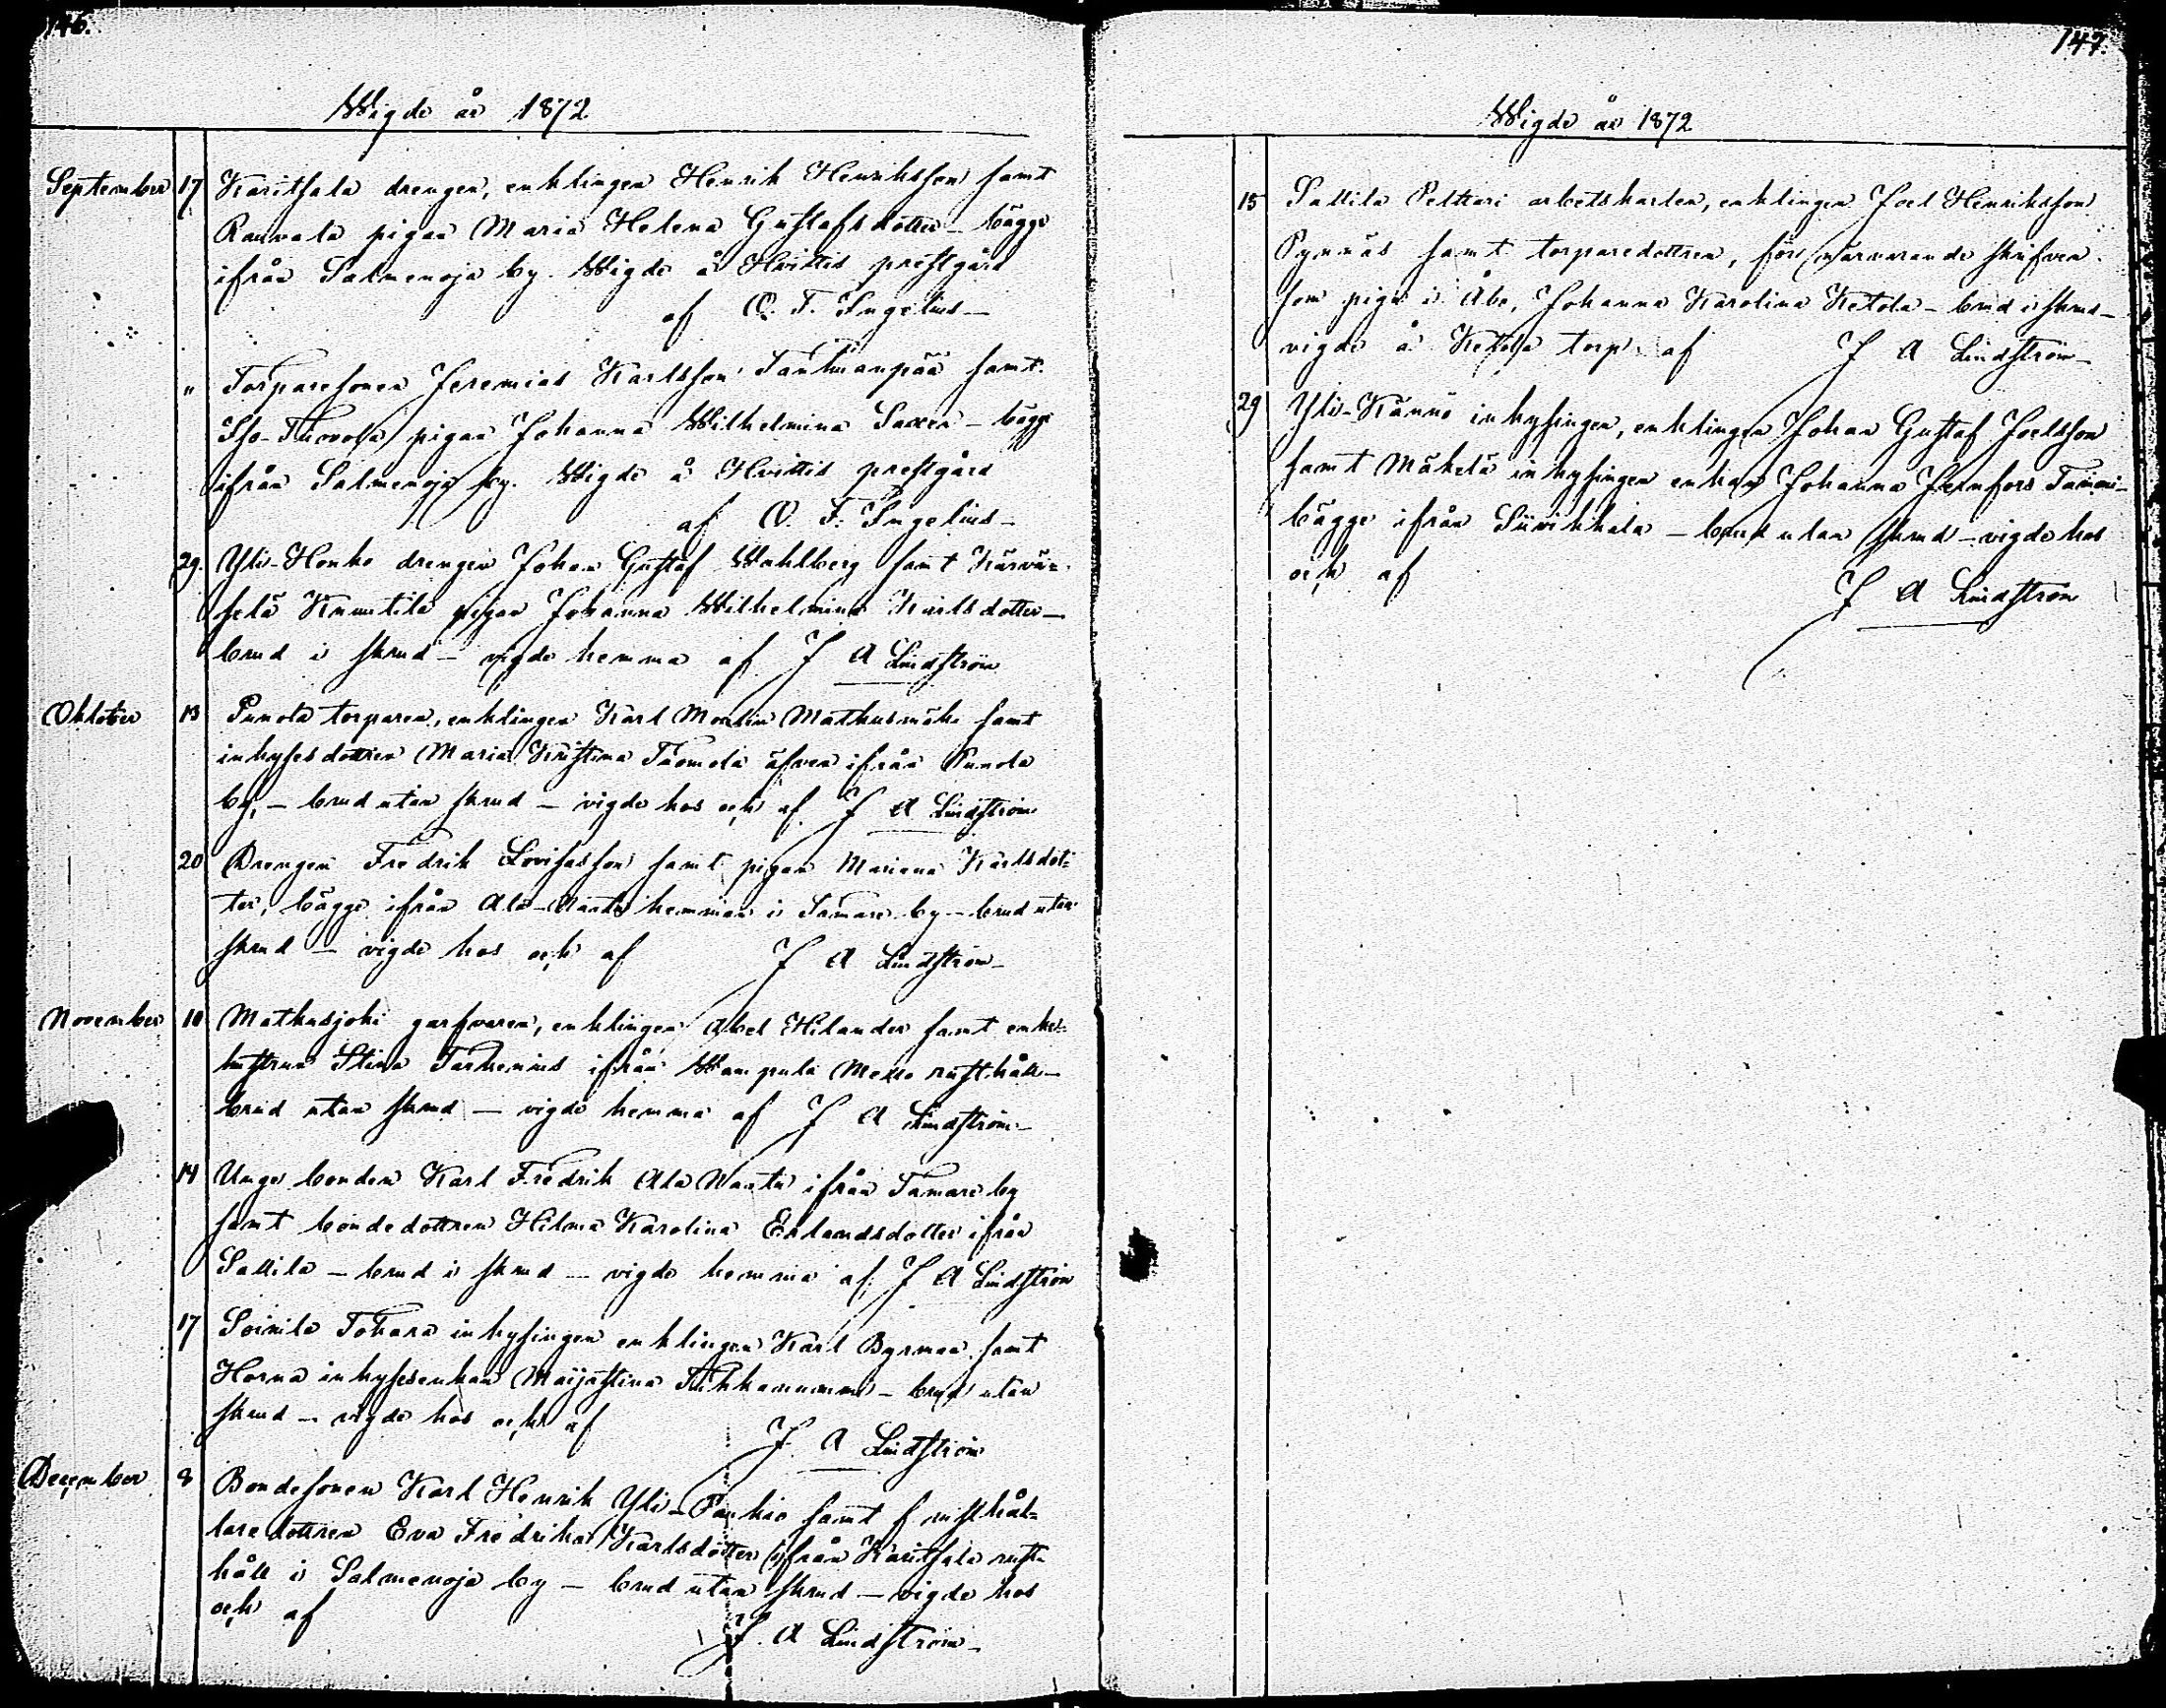 146.
Wigde år 1872
September 17 Karitsala drengen, enklingen Henrik Henriksson samt
Rauvala pigan Maria Helena Gustafsdotter – bägge
ifrån Salmenoja by. Wigde å Hvittis prestgård
af O. F. Ingelius –
" Torparesonen Jeremias Karlsson samt
Iso- pigan Johanna Wilhelmina Saxen – bägge
ifrån Salmenoja by. Wigde å Hvittis prestgård
af O. F. Ingelius –
29. Yli-Honko drengen Johan Gustaf Wahlberg samt Kärvä-
selä pigan Johanna Wilhelmina Karlsdotter –
brud i skrud – vigde hemma af J A Lindström
Oktober 13 Punola torparen, enklingen Karl samt
inhysesdottren Maria Kristina Tuomola äfven ifrån Punola
by, – brud utan skrud – vigde hos och af J A Lindström
20 Drengen Fredrik Lovisasson samt pigan Mariana Karlsdot-
ter, bägge ifrån Ala- hemman i Tamare by – brud utan
skrud – vigde hos och af J A Lindström –
November 10 Matkusjoki garfvaren, enklingen Abel Hilander samt enke-
hustrun Stina ifrån Wampula rusthåll –
brud utan skrud – vigde hemma af J A Lindström –
14 Unge bonden Karl Fredrik Ala ifrån Tamare by
samt bondedottren Hilma Karolina Erlandsdotter ifrån
Sallila – brud i skrud – vigde hemma af J A Lindström
17 Soinila inhysingen enklingen Karl Byrman samt
Horna inhysesenkan Maijastina – brud utan
skrud – vigde hos och af
J. A Lindström
December 8 Bondesonen Karl Henrik Yli- samt f rusthål-
laredottren Eva Fredrika Karlsdotter ifrån Karitsala rust-
håll i Salmenoja by – brud utan skrud – vigde hos
och af
J. A Lindström –
147.
Wigde år 1872
15 Sallila Pelttari arbetskarlen, enklingen Joel Henriksson
samt torparedottren, för närvarande skrifven
som piga i Åbo, Johanna Karolina Ketola – brud i skrud –
vigde å Ketola torp af J A Lindström –
29 Yli-Kännö inhysingen, enklingen Johan Gustaf Joelsson
samt Mäkelä inhysingen enkan Johanna
bägge ifrån – brud utan skrud – vigde hos
och af
J A Lindström